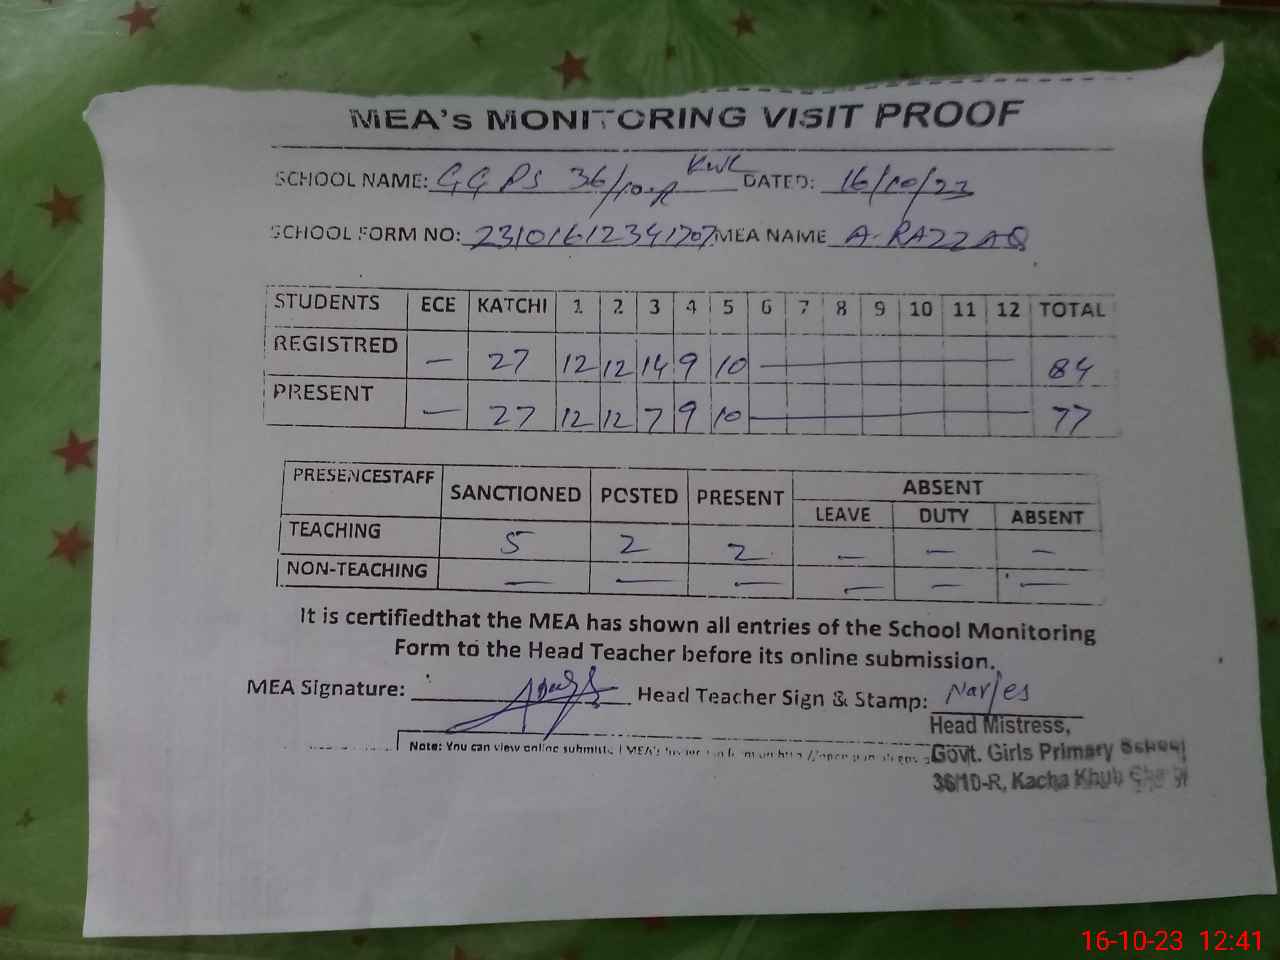 MEA's MONITORING VISIT PROOF
SCHOOL NAME: GGPS 36/10-R KWL DATED: 16/10/23
SCHOOL FORM NO: 23101612341707 MEA NAME A. RAZZAQ
STUDENTS ECE KATCHI 1 2 3 4 5 6 7 8 9 10 11 12 TOTAL
REGISTRED — 27 12 12 14 9 10 — 84
PRESENT — 27 12 12 7 9 10 — 77
PRESENCESTAFF SANCTIONED POSTED PRESENT ABSENT
LEAVE DUTY ABSENT
TEACHING 5 2 2 — — —
NON-TEACHING — — — — — —
It is certifiedthat the MEA has shown all entries of the School Monitoring
Form to the Head Teacher before its online submission.
MEA Signature: Head Teacher Sign & Stamp: Narjes
Head Mistress,
Note: You can view online
Govt. Girls Primary School
36/10-R, Kacha Khuh
16-10-23 12:41